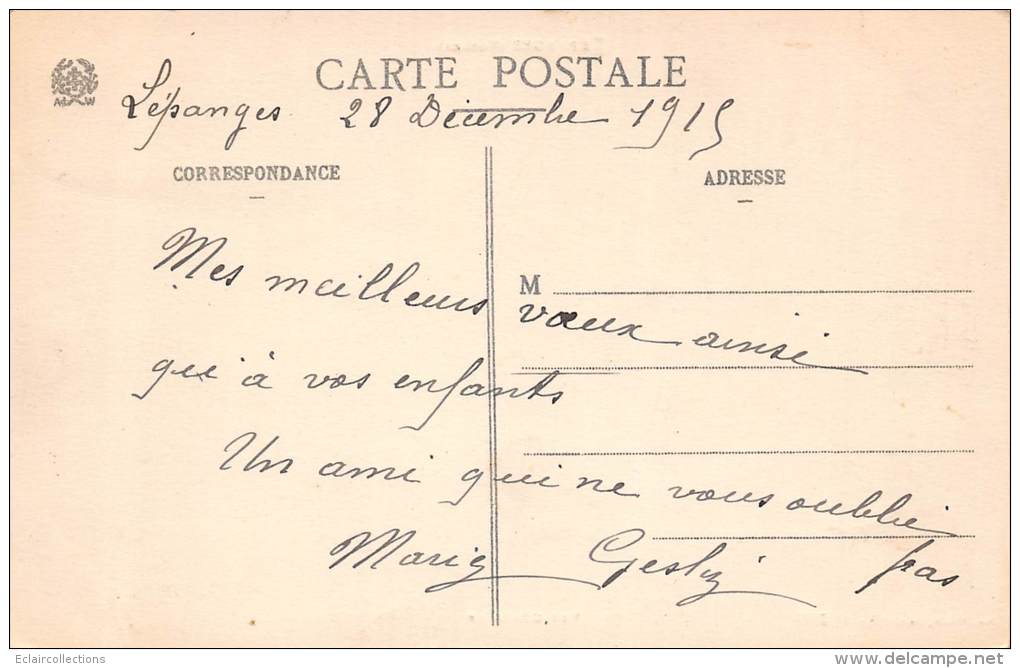 CARTE POSTALE
Lépanges 28 Décembre 1915
CORRESPONDANCE
ADRESSE
M
Mes meilleurs vœux ainsi
qui à vos enfants
Un ami qui ne vous oublie
pas
Eclaircollections
www.delcampe.net